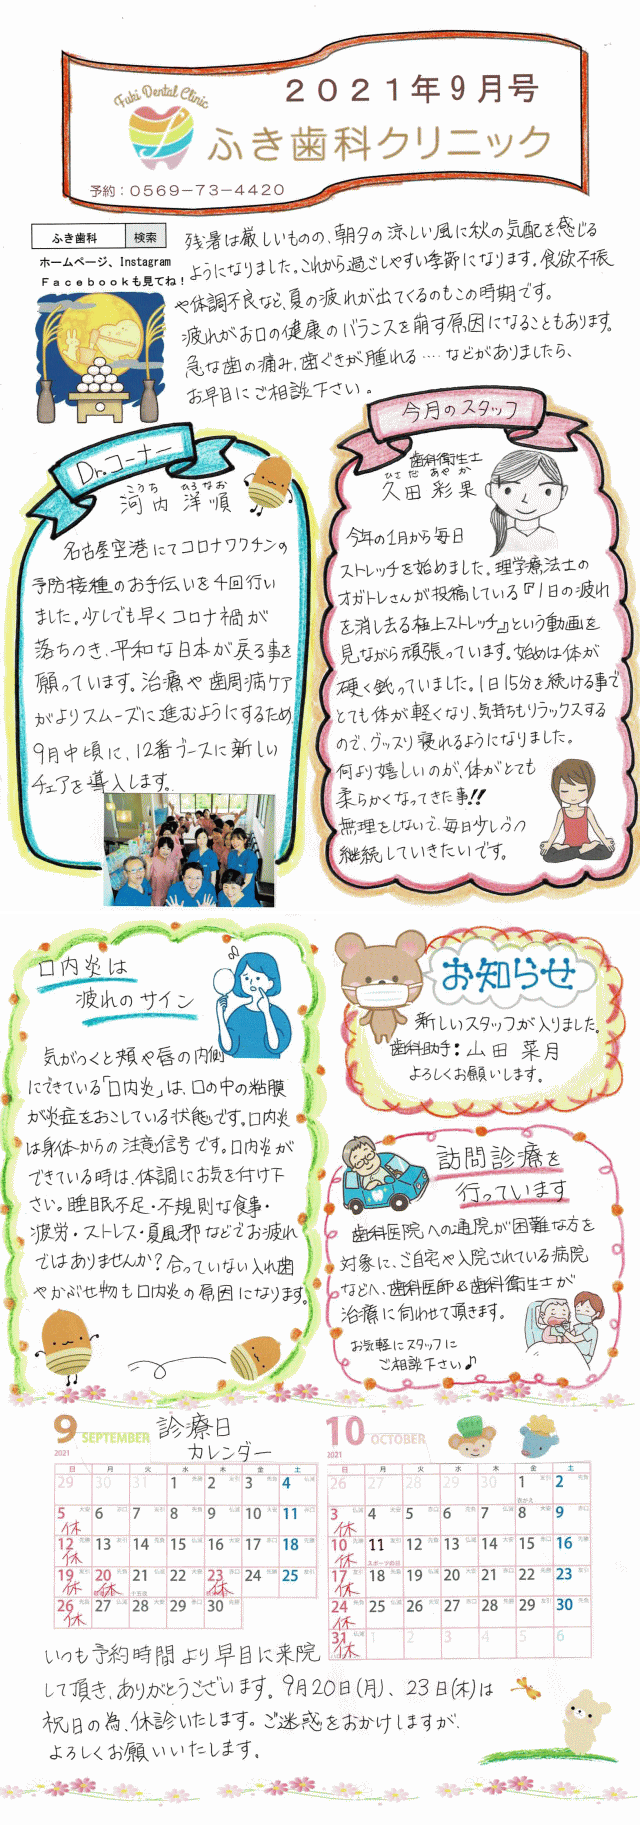 Fuki Dental Clinic
2021年9月号
ふき歯科クリニック
予約：0569-73-4420
ふき歯科 検索
ホームページ、Instagram
Facebookも見てね！
残暑は厳しいものの、朝夕の涼しい風に秋の気配を感じる
ようになりました。これから過ごしやすい季節になります。食欲不振
や体調不良など、夏の疲れが出てくるのもこの時期です。
疲れがお口の健康のバランスを崩す原因になることもあります。
急な歯の痛み、歯ぐきが腫れる････などがありましたら、
お早目にご相談下さい。
Dr.コーナー
こうち ひろなお
河内 洋順
名古屋空港にてコロナワクチンの
予防接種のお手伝いを4回行い
ました。少しでも早くコロナ禍が
落ちつき、平和な日本が戻る事を
願っています。治療や歯周病ケア
がよりスムーズに進むようにするため
9月中頃に、12番ブースに新しい
チェアを導入します。
今月のスタッフ
歯科衛生士
ひさだ あやか
久田 彩果
今年の1月から毎日
ストレッチを始めました。理学療法士の
オガトレさんが投稿している『1日の疲れ
を消し去る極上ストレッチ』という動画を
見ながら頑張っています。始めは体が
硬く鈍っていました。1日15分を続ける事で
とても体が軽くなり、気持ちもリラックスする
ので、グッスリ寝れるようになりました。
何より嬉しいのが、体がとても
柔らかくなってきた事!!
無理をしないで、毎日少しずつ
継続していきたいです。
口内炎は
疲れのサイン
気がつくと頬や唇の内側
にできている「口内炎」は、口の中の粘膜
が炎症をおこしている状態です。口内炎
は身体からの注意信号です。口内炎が
できている時は、体調にお気を付け下
さい。睡眠不足・不規則な食事・
疲労・ストレス・夏風邪などでお疲れ
ではありませんか？合っていない入れ歯
やかぶせ物も口内炎の原因になります。
お知らせ
新しいスタッフが入りました。
歯科助手：山田 菜月
よろしくお願いします。
訪問診療を
行っています
歯科医院への通院が困難な方を
対象に、ご自宅や入院されている病院
などへ、歯科医師&歯科衛生士が
治療に伺わせて頂きます。
お気軽にスタッフに
ご相談下さい♪
診療日
カレンダー
9 SEPTEMBER
2021
日 月 火 水 木 金 土
29 30 31 1 2 3 4
5 6 7 8 9 10 11
休
12 13 14 15 16 17 18
休
19 20 21 22 23 24 25
休 休 休
26 27 28 29 30
休
10 OCTOBER
2021
日 月 火 水 木 金 土
26 27 28 29 30 1 2
3 4 5 6 7 8 9
休
10 11 12 13 14 15 16
休 スポーツの日
17 18 19 20 21 22 23
休
24 25 26 27 28 29 30
休
31 1 2 3 4 5 6
休
いつも予約時間より早目に来院
して頂き、ありがとうございます。9月20日(月)、23日(木)は
祝日の為、休診いたします。ご迷惑をおかけしますが、
よろしくお願いいたします。